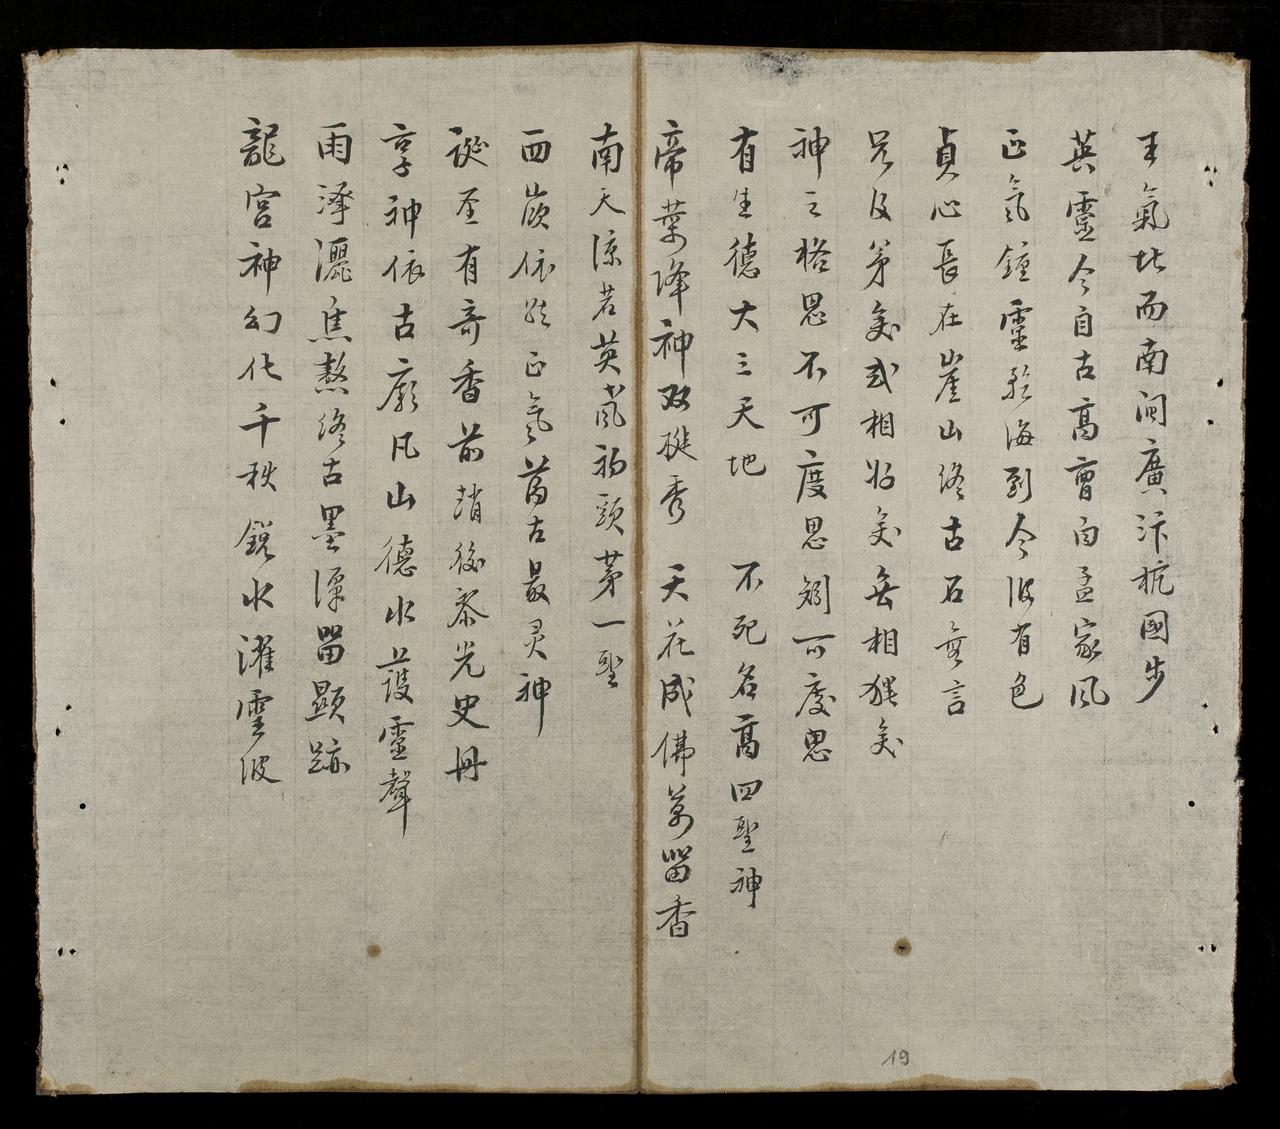 王氣北而南閩廣汴杭國步
英靈今自古高曾自孟家風
正氣鍾靈乾海到今波有色
貞心長在崖山终古石無言
兄及弟矣式相好矣無相猶矣
神之格思不可度思矧可度思
有生德大三天地 不死名高四聖神
帝葉降神双挺秀 天花成佛萬畱香
南天凉若英風初頭茅一聖
四嵗依然正氣萬古最灵神
誕至有奇香前趙後黎光史冊
享神依古廟凡山德水護靈聲
雨澤灑焦熬终古墨潭畱顯跡
龍宮神幻化千秋鏡水濯靈波
19